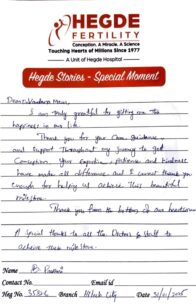 HEGDE
FERTILITY
Conception. A Miracle. A Science
Touching Hearts of Millions Since 1977
A Unit of Hegde Hospital
Hegde Stories - Special Moment
Dear Vandana Mam,
I am truly grateful for getting me the
happiness in our life.
Thank you for your Care, guidance,
and support throughout my journey to get
Conception. Your Expertise, Patience and kindness
have made all difference and I cannot thank you
enough for helping us achieve this beautiful
milestone.
Thank you from the bottom of our heart
A special thanks to all the Doctors & Staff to
achieve this milestone.
Name
Contact No. Email id
Reg No. Branch Hitech City Date